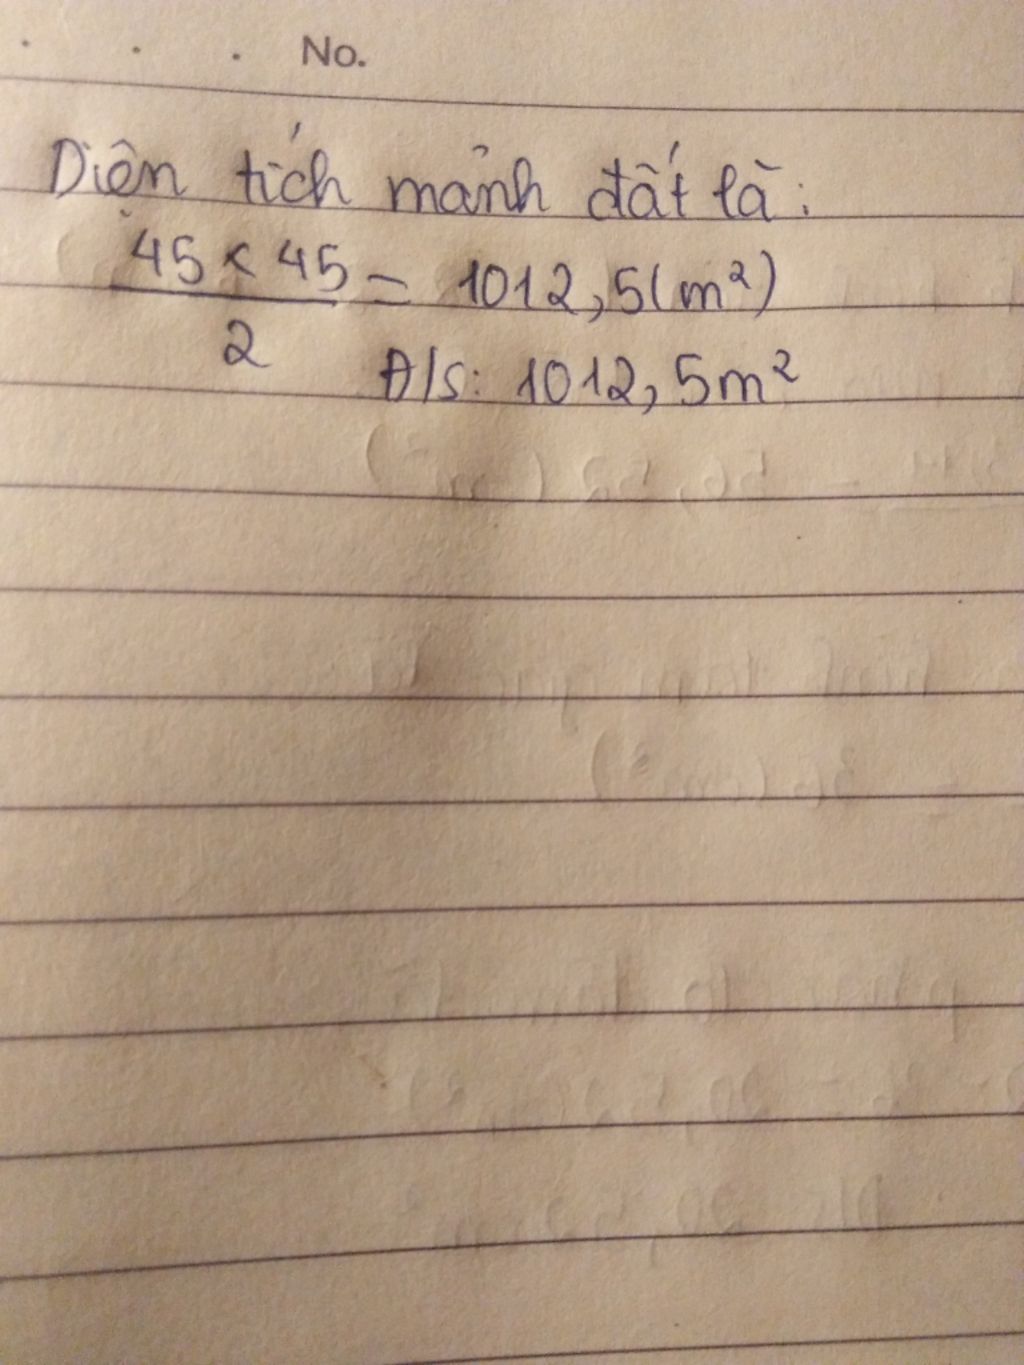 No.
Diện tích mảnh đất là:
45 × 45 / 2 = 1012,5(m²)
Đ/S: 1012,5m²